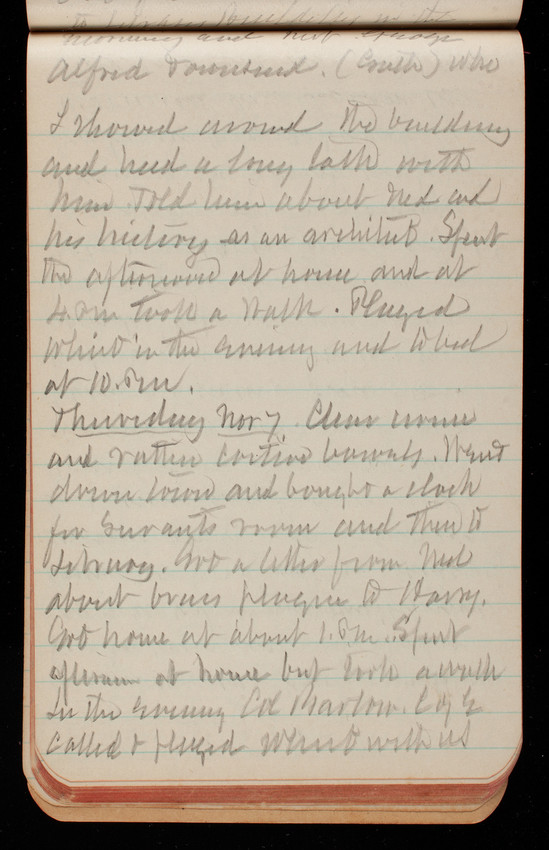 morning and met
Alfred Townsend. (South) who
I showed around the building
and had a long talk with
him. Told him about Ned and
his history as an architect. Spent
the afternoon at home and at
4 P.m took a walk. Played
Whist in the evening and to bed
at 10. P.m.
Thursday Nov 7. Clear
and rather bowels. Went
down town and bought a clock
for servants room and then to
Library. Got a letter from Ned
about brass plague to Harry.
Got home at about 1. P.m. Spent
afternoon at home but took a walk
In the evening Col Barlow. C of E
called & played Whist with us